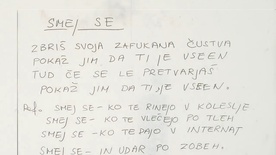 SMEJ SE
ZBRIŠ SVOJA ZAFUKANA ČUSTVA
POKAŽ JIM, DA TI JE VSEEN
TUD ČE SE LE PRETVARJAŠ
POKAŽ JIM, DA TI JE VSEEN.
Ref. SMEJ SE - KO TE RINEJO V KOLESJE
SMEJ SE - KO TE VLEČEJO PO TLEH
SMEJ SE - KO TE DAJO V INTERNAT
SMEJ SE - IN UDAR PO ZOBEH.